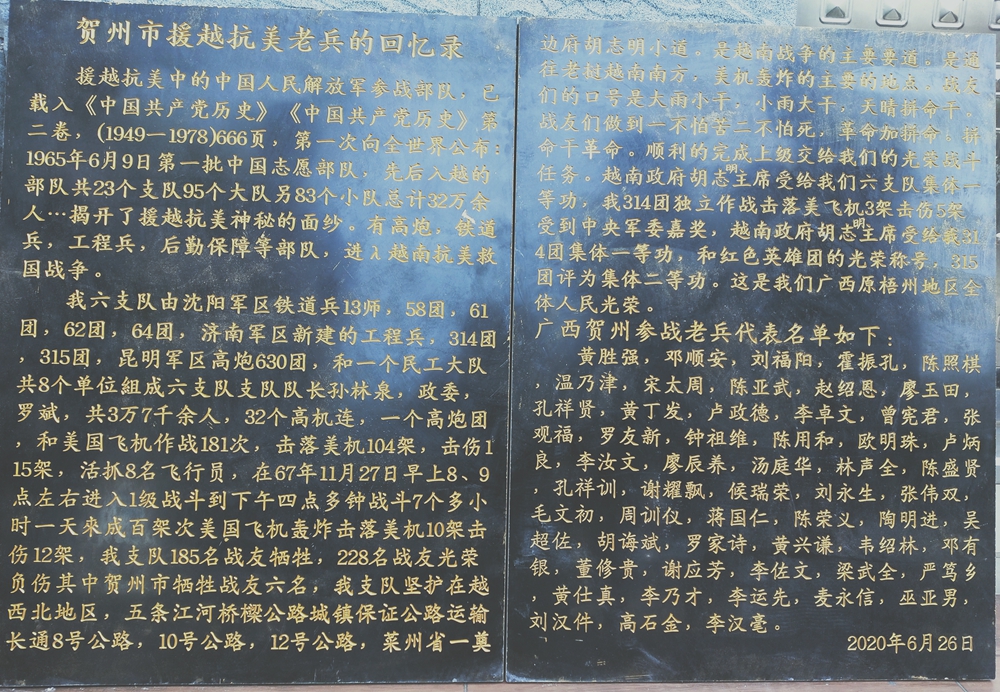 贺州市援越抗美老兵的回忆录
援越抗美中的中国人民解放军参战部队，已
载入《中国共产党历史》《中国共产党历史》第
二卷，(1949—1978)666页，第一次向全世界公布：
1965年6月9日第一批中国志愿部队，先后入越的
部队共23个支队95个大队另83个小队总计32万余
人…揭开了援越抗美神秘的面纱。有高炮，铁道
兵，工程兵，后勤保障等部队，进入越南抗美救
国战争。
我六支队由沈阳军区铁道兵13师，58团，61
团，62团，64团，济南军区新建的工程兵，314团
，315团，昆明军区高炮630团，和一个民工大队
共8个单位組成六支队支队队长孙林泉，政委，
罗斌，共3万7千余人，32个高机连，一个高炮团
，和美国飞机作战181次，击落美机104架，击伤1
15架，活抓8名飞行员，在67年11月27日早上8、9
点左右进入1级战斗到下午四点多钟战斗7个多小
时一天来成百架次美国飞机轰炸击落美机10架击
伤12架，我支队185名战友牺牲，228名战友光荣
负伤其中贺州市牺牲战友六名，我支队坚护在越
西北地区，五条江河桥樑公路城镇保证公路运输
长通8号公路，10号公路，12号公路，莱州省一奠
边府胡志明小道。是越南战争的主要要道。是通
往老挝越南南方，美机轰炸的主要的地点，战友
们的口号是大雨小干，小雨大干，天晴拼命干。
战友们做到一不怕苦二不怕死，革命加拼命，拼
命干革命。顺利的完成上级交给我们的光荣战斗
任务。越南政府胡志明主席受给我们六支队集体一
等功，我314团独立作战击落美飞机3架击伤5架
受到中央军委嘉奖，越南政府胡志明主席受给我31
4团集体一等功，和红色英雄团的光荣称号，315
团评为集体二等功。这是我们广西原梧州地区全
体人民光荣。
广西贺州参战老兵代表名单如下：
黄胜强，邓顺安，刘福阳，霍振孔，陈照棋
，温乃津，宋太周，陈亚武，赵绍恩，廖玉田，
孔祥贤，黄丁发，卢政德，李卓文，曾宪君，张
观福，罗友新，钟祖维，陈用和，欧明珠，卢炳
良，李汝文，廖辰养，汤庭华，林声全，陈盛贤
，孔祥训，谢耀飘，候瑞荣，刘永生，张伟双，
毛文初，周训仪，蒋国仁，陈荣义，陶明进，吴
超佐，胡海斌，罗家诗，黄兴谦，韦绍林，邓有
银，董修贵，谢应芳，李佐文，梁武全，严笃乡
，黄仕真，李乃才，李运先，麦永信，巫亚男，
刘汉件，高石金，李汉毫。
2020年6月26日